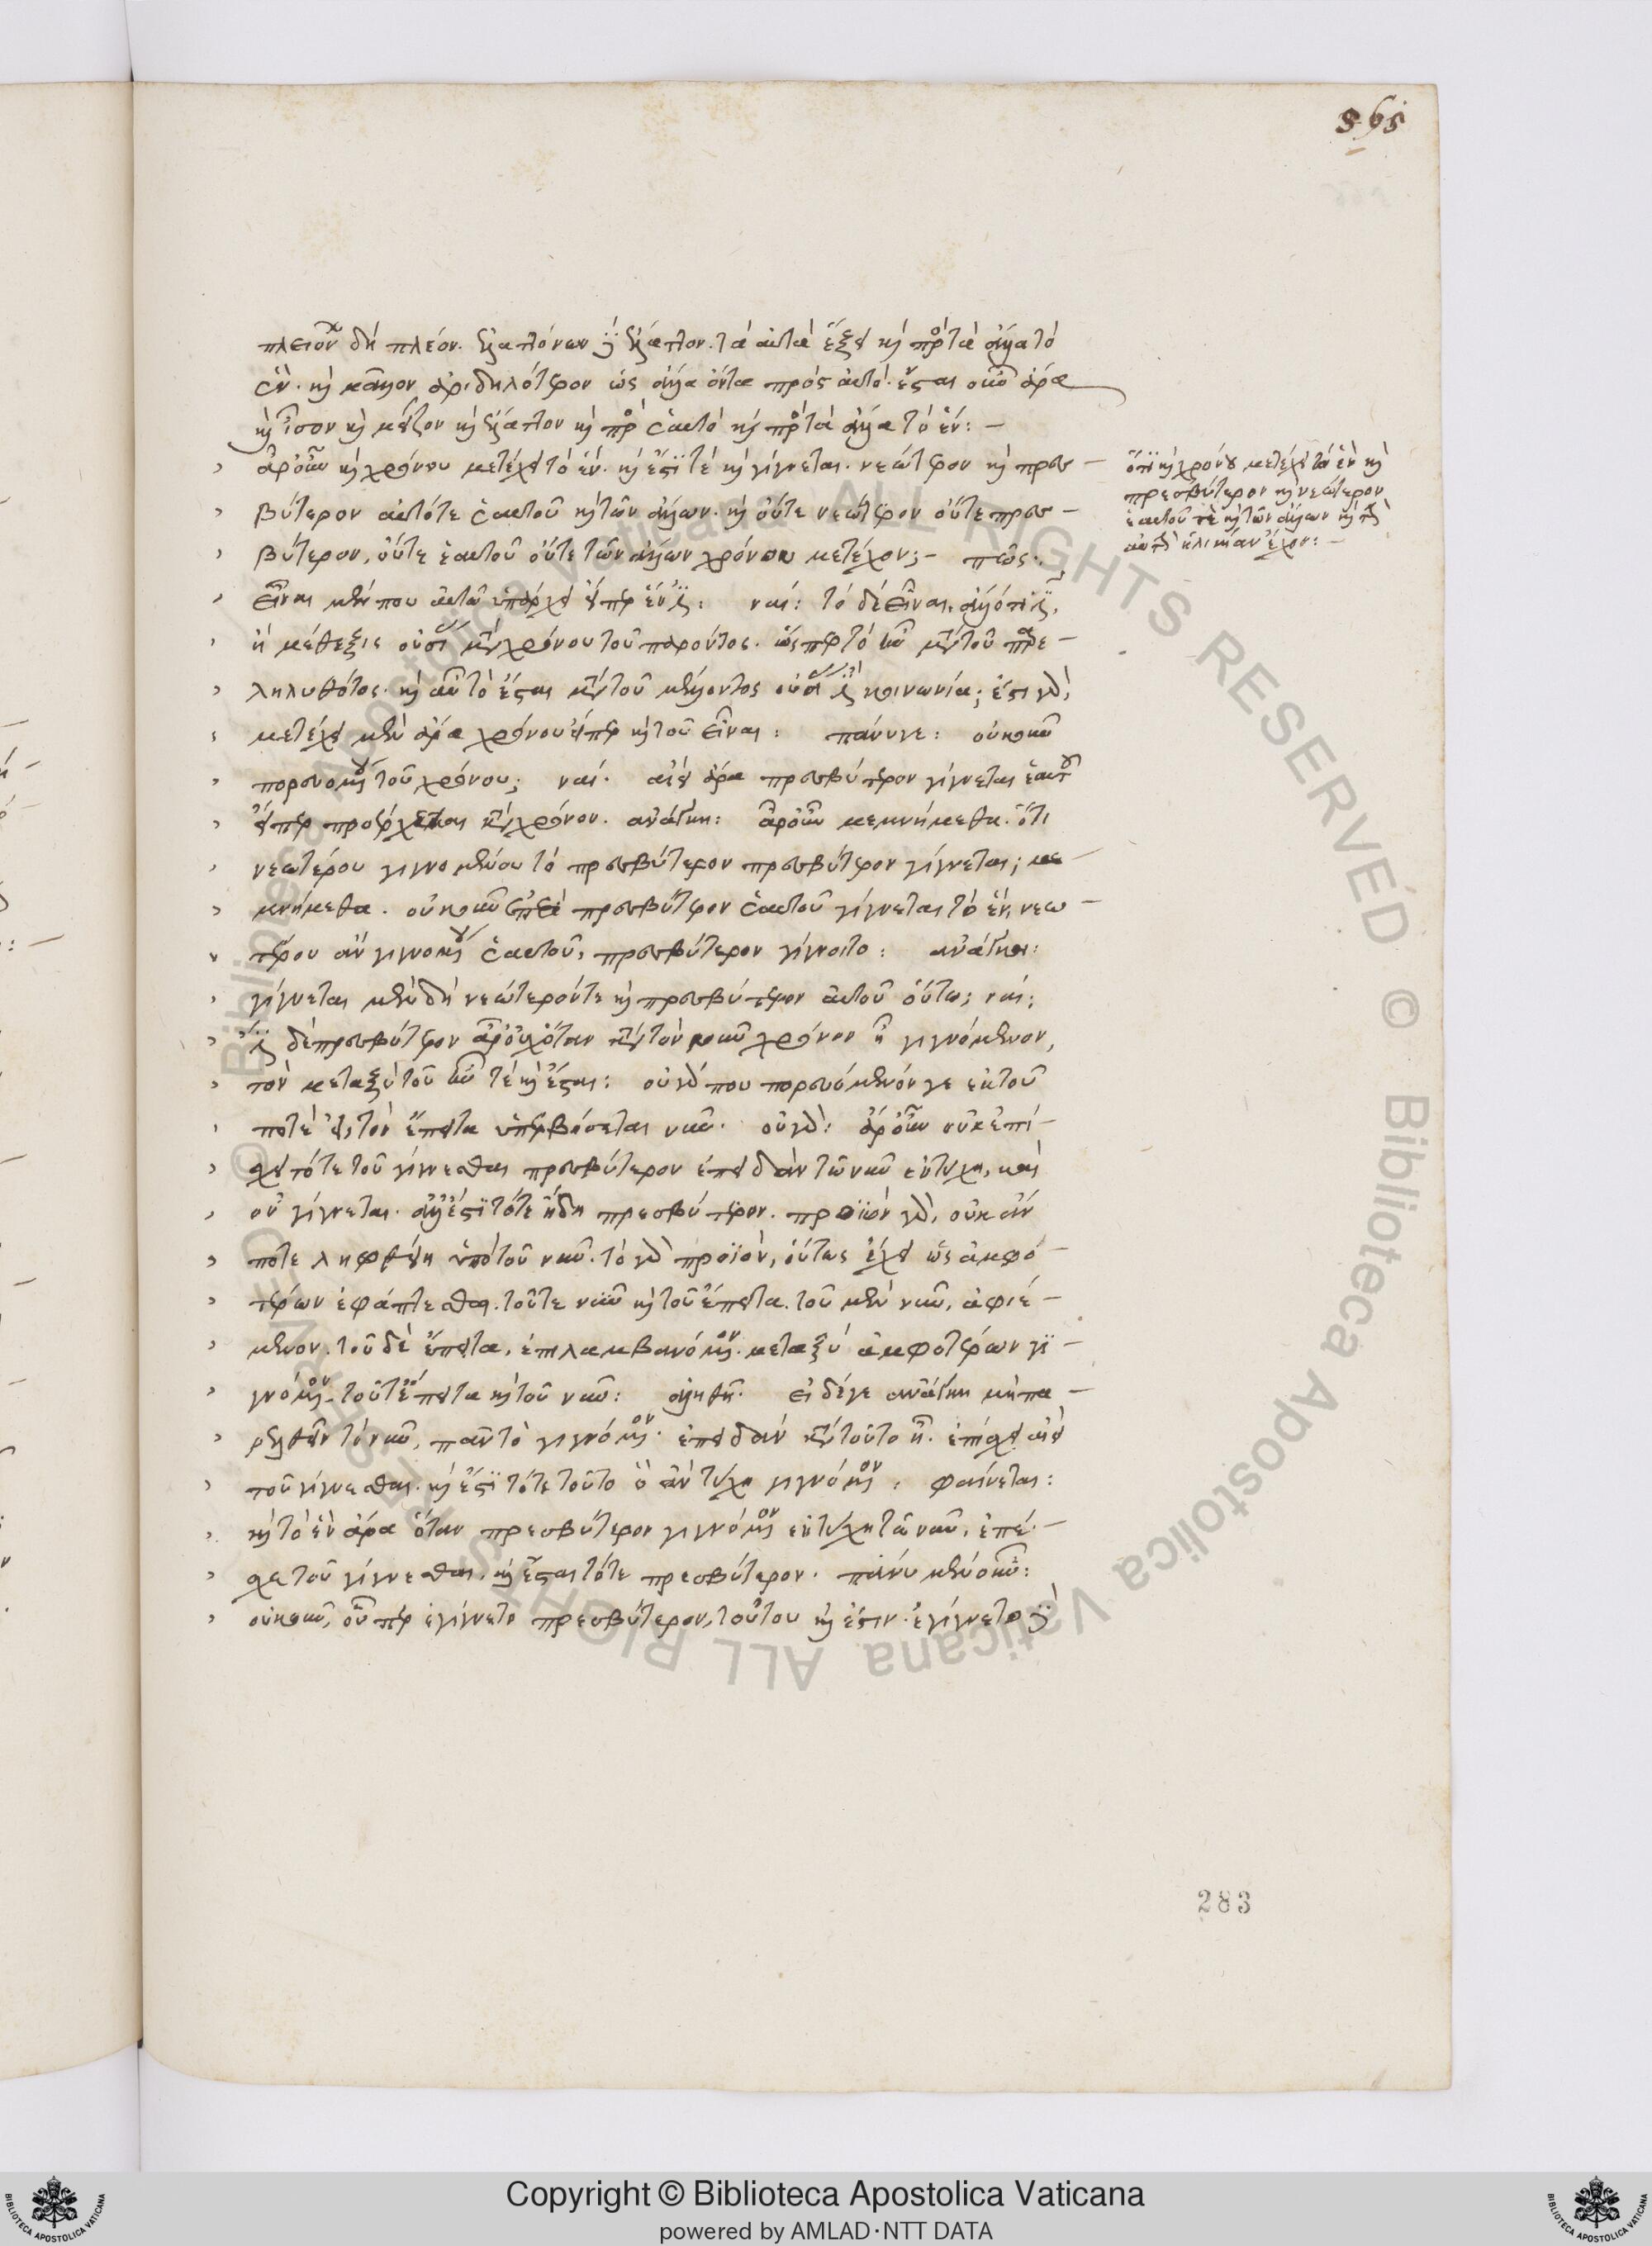 565
πλειόνων δὴ πλέον. ἐλαττόνων δὲ ἔλαττον. τὰ αὐτὰ ἕξει καὶ πρὸς τὰ ἄλλα τὸ
ἕν. καὶ μᾶλλον ἀριδηλότερον ὡς ἄλλα ὄντα πρὸς αὐτό. ἔσται οὖν ἄρα
καὶ ἴσον καὶ μεῖζον καὶ ἔλαττον καὶ πρὸς ἑαυτὸ καὶ πρὸς τὰ ἄλλα τὸ ἕν: –
ἆρ' οὖν καὶ χρόνου μετέχει τὸ ἕν. καὶ ἐστί τε καὶ γίγνεται. νεώτερον καὶ πρεσ –
βύτερον αὐτό τε ἑαυτοῦ καὶ τῶν ἄλλων. καὶ οὔτε νεώτερον οὔτε πρεσ –
βύτερον, οὔτε ἑαυτοῦ οὔτε τῶν ἄλλων χρόνου μετέχον; – πῶς:
εἶναι μέν που αὐτῷ ὑπάρχει εἴπερ ἕν ἐστι: ναί: τὸ δὲ εἶναι, ἄλλό τί ἐστιν,
ἢ μέθεξις οὐσίας μετὰ χρόνου τοῦ παρόντος. ὥσπερ τὸ ἦν μετὰ τοῦ παρε –
ληλυθότος. καὶ αὖ τὸ ἔσται μετὰ τοῦ μέλλοντος οὐσίας ἐστὶ κοινωνία; ἔστι γάρ,
μετέχει μὲν ἄρα χρόνου εἴπερ καὶ τοῦ εἶναι: πάνυ γε: οὐκοῦν
πορευομένου τοῦ χρόνου; ναί. αἰεὶ ἄρα πρεσβύτερον γίγνεται ἑαυτοῦ
εἴπερ προέρχεται κατὰ χρόνον. ἀνάγκη: ἆρ' οὖν μεμνήμεθα. ὅτι
νεωτέρου γιγνομένου τὸ πρεσβύτερον πρεσβύτερον γίγνεται; με –
μνήμεθα. οὐκοῦν ἐπειδὴ πρεσβύτερον ἑαυτοῦ γίγνεται τὸ ἕν, νεω –
τέρου ἂν γιγνομένου ἑαυτοῦ, πρεσβύτερον γίγνοιτο: ἀνάγκη:
γίγνεται μὲν δὴ νεώτερόν τε καὶ πρεσβύτερον αὑτοῦ οὕτω; ναί:
ἔστι δὲ πρεσβύτερον ἆρ' οὐχ ὅταν κατὰ τὸν νῦν χρόνον ᾖ γιγνόμενον,
τὸν μεταξὺ τοῦ ἦν τε καὶ ἔσται: οὐ γάρ που πορευόμενόν γε ἐκ τοῦ
ποτὲ εἰς τὸν ἔπειτα ὑπερβήσεται νῦν. οὐ γάρ: ἆρ' οὖν οὐκ ἐπί –
σχει τότε τοῦ γίγνεσθαι πρεσβύτερον ἐπειδὰν τῷ νῦν ἐντύχῃ, καὶ
οὐ γίγνεται. ἀλλ' ἐστὶ τότε ἤδη πρεσβύτερον. προϊὸν γάρ, οὐκ ἄν
ποτε ληφθείη ὑπὸ τοῦ νῦν. τὸ γὰρ προϊόν, οὕτως ἔχει ὡς ἀμφο –
τέρων ἐφάπτεσθαι. τοῦ τε νῦν καὶ τοῦ ἔπειτα. τοῦ μὲν νῦν, ἀφιέ –
μενον. τοῦ δὲ ἔπειτα, ἐπιλαμβανόμενον. μεταξὺ ἀμφοτέρων γι –
γνόμενον. τοῦ τε ἔπειτα καὶ τοῦ νῦν: ἀληθῆ. εἰ δέ γε ἀνάγκη μὴ πα –
ρελθεῖν τὸ νῦν, πᾶν τὸ γιγνόμενον. ἐπειδὰν κατὰ τοῦτο ᾖ. ἐπίσχει αἰεὶ
τοῦ γίγνεσθαι. καὶ ἔστι τότε τοῦτο ὃ ἂν τύχῃ γιγνόμενον: φαίνεται:
καὶ τὸ ἓν ἄρα ὅταν πρεσβύτερον γιγνόμενον ἐντύχῃ τῷ νῦν, ἐπέ –
σχε τοῦ γίγνεσθαι, καὶ ἔσται τότε πρεσβύτερον. πάνυ μὲν οὖν:
οὐκοῦν, οὗπερ ἐγίγνετο πρεσβύτερον, τούτου καὶ ἔστιν. ἐγίγνετο δὲ
ὅτι καὶ χρόνου μετέχει τὸ ἓν καὶ
πρεσβύτερον καὶ νεώτερον
ἑαυτοῦ τε καὶ τῶν ἄλλων καὶ τὴν
αὐτὴν ἡλικίαν ἔχον: –
283
© Biblioteca Apostolica Vaticana ALL RIGHTS RESERVED © Biblioteca Apostolica Vaticana ALL RIGHTS RESERVED
Copyright © Biblioteca Apostolica Vaticana
powered by AMLAD・NTT DATA
BIBLIOTECA APOSTOLICA VATICANA
BIBLIOTECA APOSTOLICA VATICANA